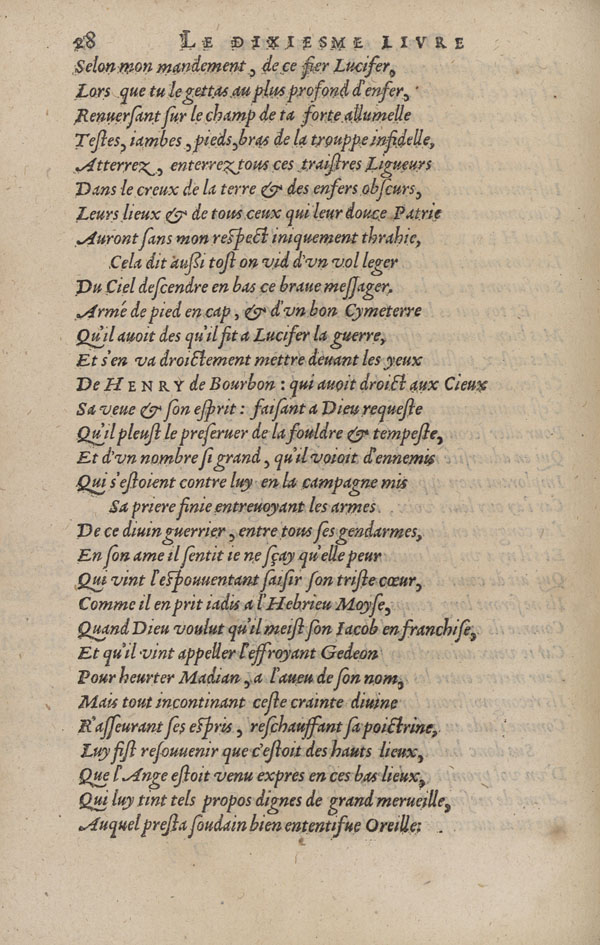 28 LE DIXIESME LIVRE
Selon mon mandement, de ce fier Lucifer,
Lors que tu le gettas au plus profond d'enfer,
Renuersant sur le champ de ta forte allumelle
Testes, iambes, pieds, bras de la trouppe infidelle,
Atterrez, enterrez tous ces traistres Ligueurs
Dans le creux de la terre & des enfers obscurs,
Leurs lieux & de tous ceux qui leur douce Patrie
Auront sans mon respect iniquement thrahie,
Cela dit aussi tost on vid d'vn vol leger
Du Ciel descendre en bas ce braue messager.
Armé de pied en cap, & d'vn bon Cymeterre
Qu'il auoit des qu'il fit a Lucifer la guerre,
Et s'en va droictement mettre deuant les yeux
De HENRY de Bourbon : qui auoit droict aux Cieux
Sa veue & son esprit : faisant a Dieu requeste
Qu'il pleust le preseruer de la fouldre & tempeste,
Et d'vn nombre si grand, qu'il voioit d'ennemis
Qui s'estoient contre luy en la campagne mis
Sa priere finie entreuoyant les armes
De ce diuin guerrier, entre tous ses gendarmes,
En son ame il sentit ie ne sçay qu'elle peur
Qui vint l'espouuentant saisir son triste cœur,
Comme il en prit iadis a l'Hebrieu Moyse,
Quand Dieu voulut qu'il meist son Iacob en franchise,
Et qu'il vint appeller l'effroyant Gedeon
Pour heurter Madian, a l'aueu de son nom,
Mais tout incontinant ceste crainte diuine
R'asseurant ses espris, reschauffant sa poictrine,
Luy fist resouuenir que c'estoit des hauts lieux,
Que l'Ange estoit venu expres en ces bas lieux,
Qui luy tint tels propos dignes de grand merueille,
Auquel presta soudain bien ententifue Oreille: